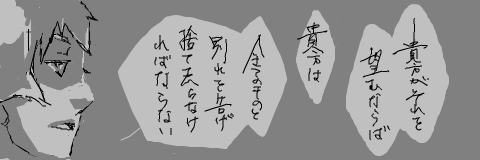 貴方がそれを
望むならば
貴方は
全てのものと
別れを告げ
捨て去らなけ
ればならない